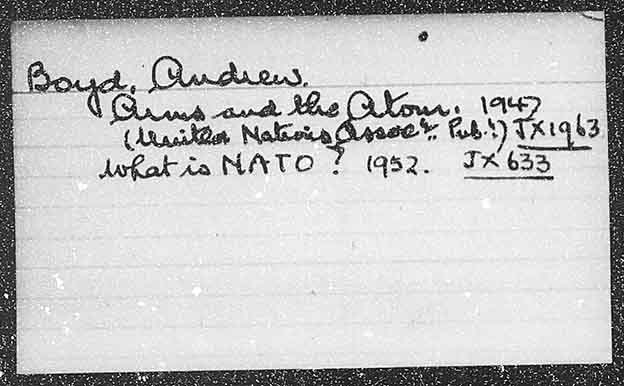 Boyd, Andrew.
Arms and the Atom. 1947
(United Nations Assocn. Pub.n) JX1963
What is NATO? 1952. JX 633